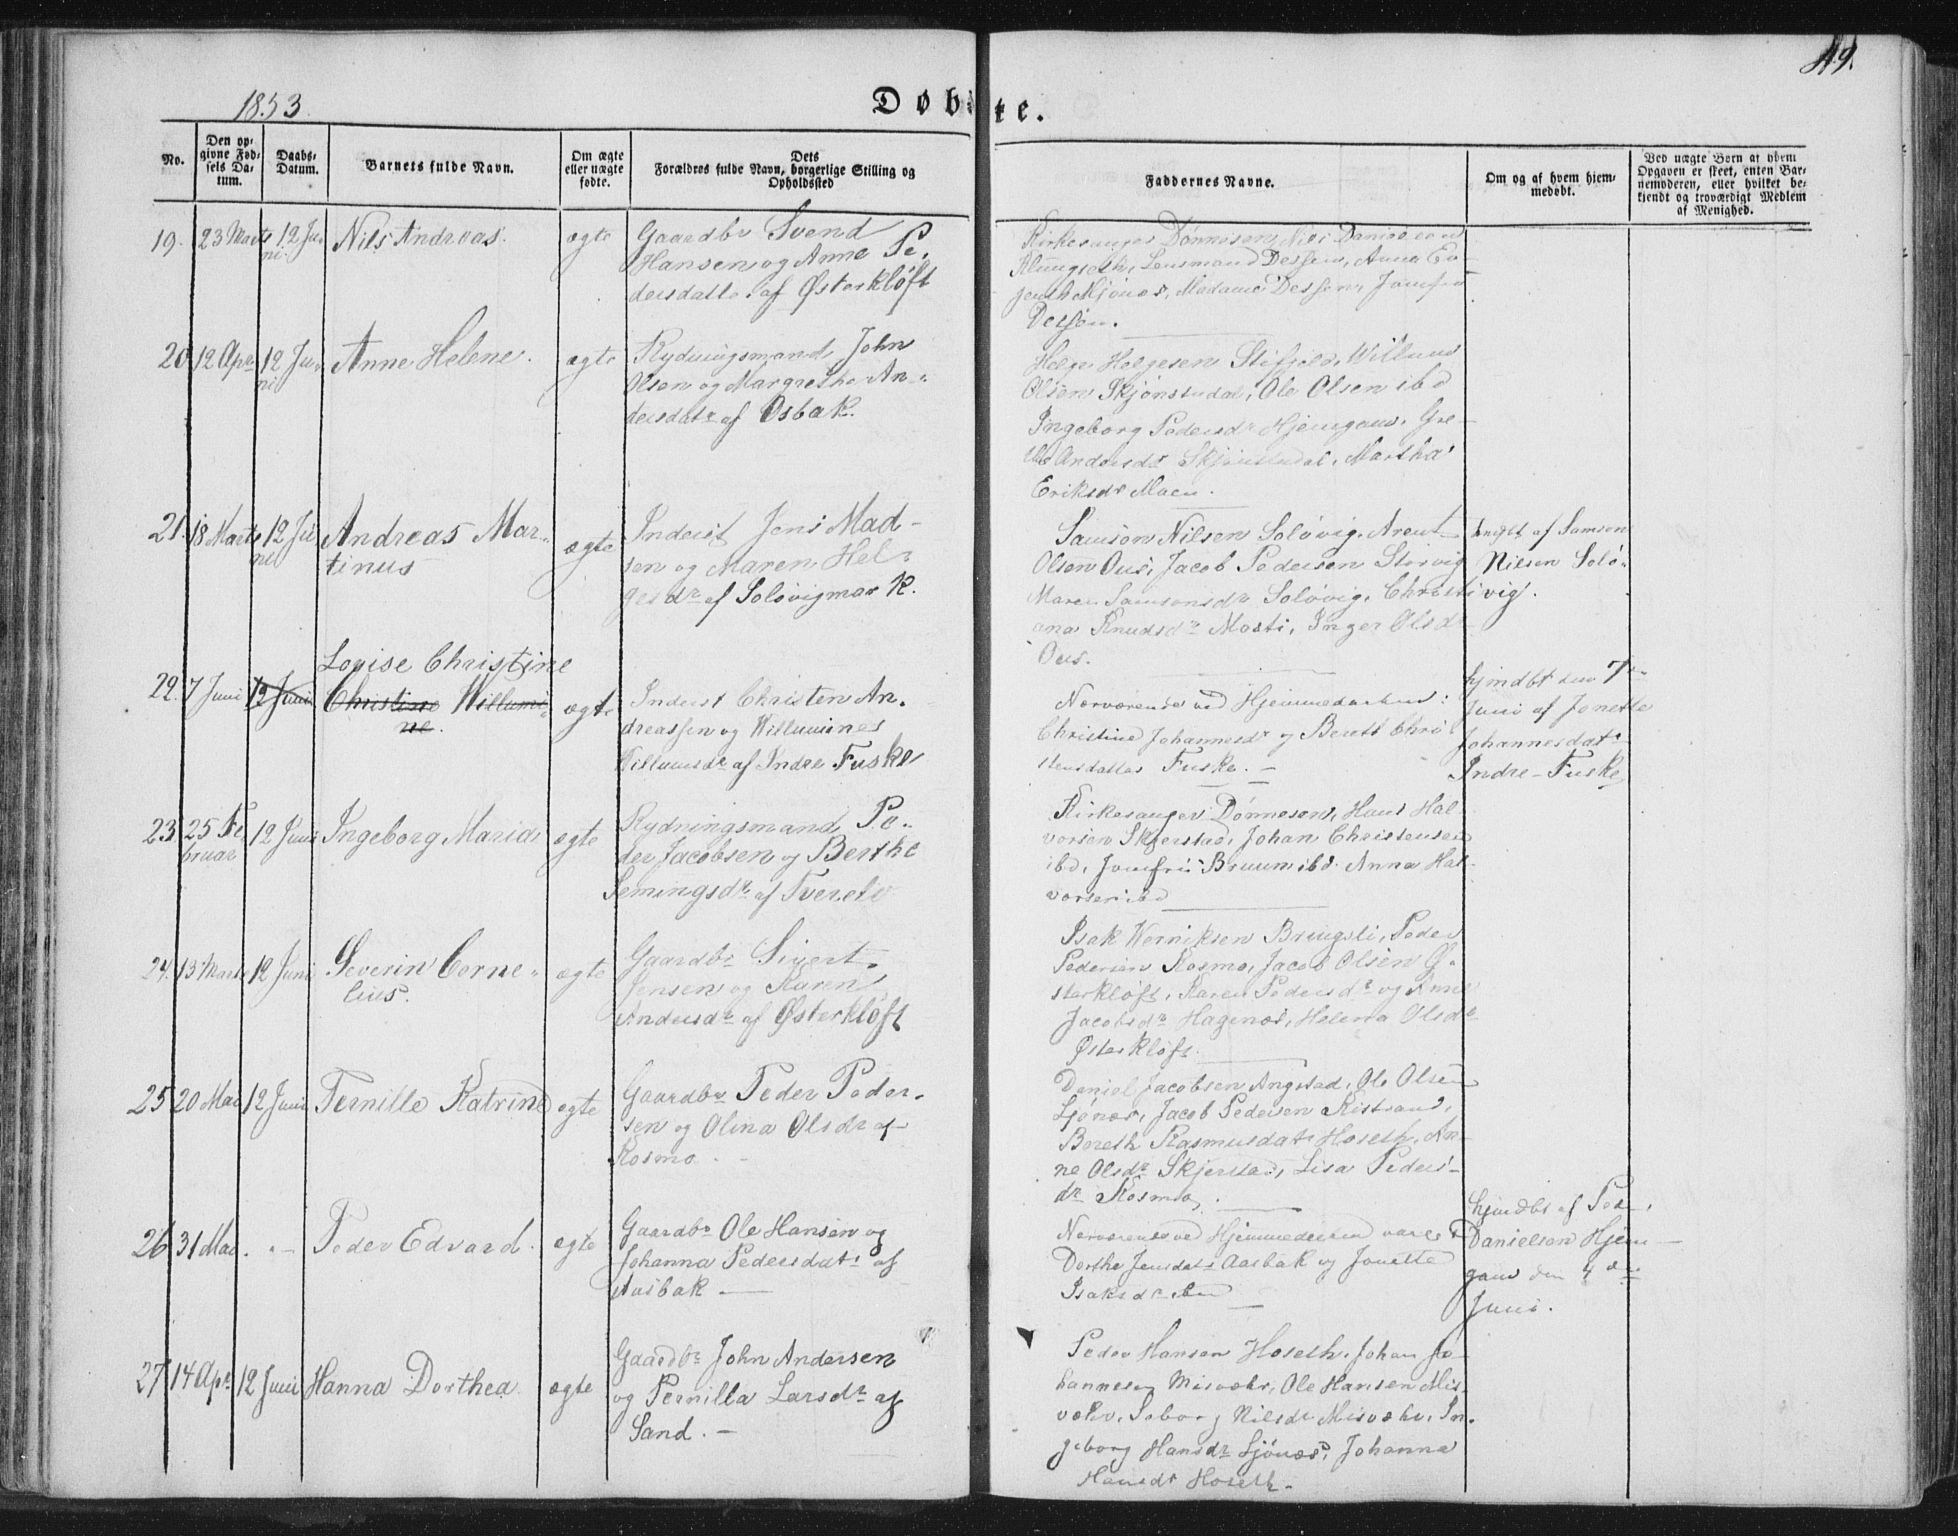 1853.
Døbte.
49.
No.
Den op-
givne Fød-
sels Da-
tum.
Daabs-
Datum.
Barnets fulde Navn.
Om ægte
eller uægte
fødte.
Dets
Forældres fulde Navn, borgerlige Stilling og
Opholdssted
Faddernes Navne.
Om og af hvem hjem-
medøbt.
Ved uægte Børn at ydern
Opgaven er skeet, enten Bar-
nemoderen, eller hvilket be-
kjendt og troværdigt Medlem
af Menighed.
19. 23 Marts 12 Ju-
ni Nils Andreas. ægte
Gaardbr Svend
Hansen og Anne Pe-
dersdatte. af Østerkløft
Kirkesanger Dønnesen, Nils Danielsen
Klungseth, Lensmand Dessen, Anna
Mjønes, Madame Dessen, Jomfru
Dessen.
20 12 Apr 12 Ju-
ni Anne Helene. ægte
Rydningsmand John
Olsen og Margrethe An-
dersdatr af Osbak.
Helge Helgesen Stifjeld, Willum
Olsen Skjønstudal, Ole Olsen ibd
Ingeborg Pedersdr Hjemgam, Gre-
the Andersdr Skjønstudal, Martha
Eriksdr Moen.
21. 18 Marts 12 Ju
ni Andreas Mar-
tinus ægte
Inderst Jens Mad-
sen og Maren Hel-
gesdr af Soløvigmark.
Samson Nilsen Soløvig, Arent
Olsen Ous, Jacob Pedersen Storvig
Maren Samsonsdr Soløvig, Christi
ana Knudsdr Mosti, Inger Olsdr
Ous.
af Samson
Nilsen Solø-
vig.
22. 7 Juni 12 Juni
Lovise Christine
Christine Willumi-
ne. ægte
Inderst Christen An-
dreassen og Willumine
Willumsdr af Indre Fuske
Nerværende ved Hjemmedaaben:
Christine Johannesdr og Berett Chri
stensdatter Fuske. –
hjmdbt den 7de
Juni af Jonette
Johannesdatr
Indre-Fuske
23 25 Fe
bruar 12 Juni Ingeborg Maria ægte
Rydningsmand Pe-
der Jacobsen og Berthe
Semingsdr af Tverelv
Kirkesanger Dønnesen, Hans Hal-
vorsen Skjerstad, Johan Christensen
ibd, Jomfru Bruun ibd. Anna Hal-
vorsen ibd
24. 13 Marts 12 Juni Severin Corne-
lius. ægte
Gaardbr Sivert
Jensen og Karen
Andersdr af Østerkløft
Isak Werniksen Bringsli, Peder
Pedersen Kosmo, Jacob Olsen Ø-
sterkløft, Karen Pedersdr og Anne
Jacobsdr Hagenæs, Helena Olsdr
Østerkløft.
25 20 Mai 12 Juni Pernille Katrine ægte
Gaardbr Peder Peder-
sen og Olina Olsdr af
Kosmo. –
Daniel Jacobsen Angstad, Ole Olsen
Ljønæs, Jacob Pedersen Ristrand,
Bereth Rasmusdatr Hoseth, An-
ne Olsdr Skjerstad, Lisa Peders-
dr Kosmo.
26 31 Mai. „ – Peder Edvard. ægte
Gaardbr Ole Hansen og
Johanna Pedersdatr af
Ausbak –
Nerværende ved Hjemmedaaben vare:
Dorthe Jensdatr Aasbak og Jonette
Isaksdr ibd
hjmdbt af Peder
Danielsen Hjem-
gam den 4de
Juni.
27 14 Apr. 12 Juni Hanna Dorthea. ægte
Gaardbr John Andersen
og Pernilla Larsdr af
Sand. –
Peder Hansen Hoseth, Johan Jo-
hannesen Misvær, Ole Hansen Mis-
vær, Nilsdr Misvær, In-
geborg Hansdr Ljønæs, Johanna
Hansdr Hoseth.